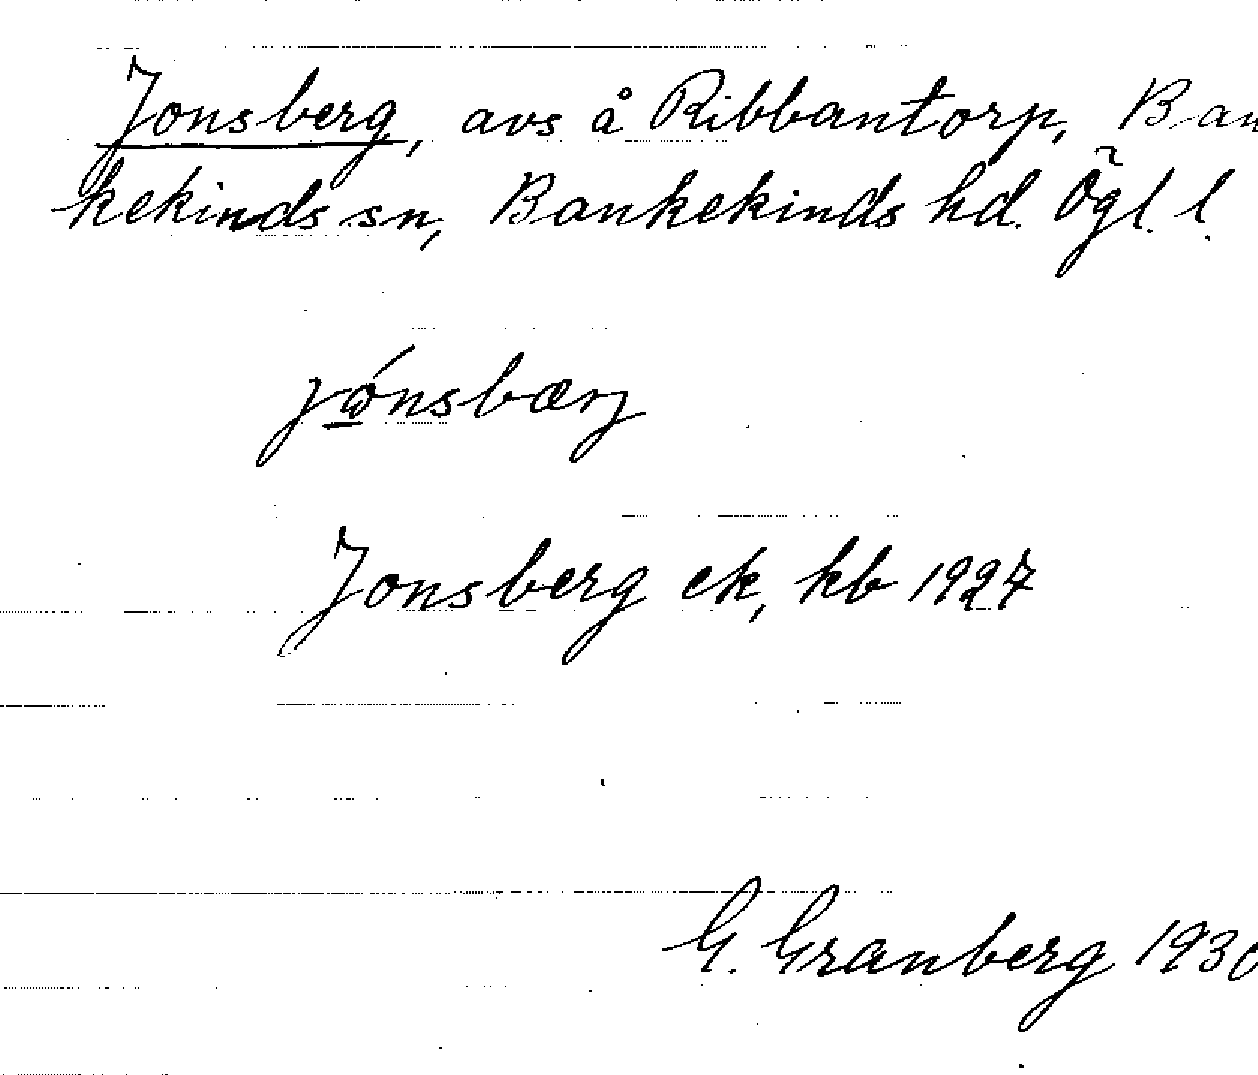 Jonsberg, avs å Ribbantorp, Ban
kekinds sn, Bankekinds hd. Ögl. l.
jó̱nsbærj
Jonsberg ek, kb 1927
G. Granberg 1930